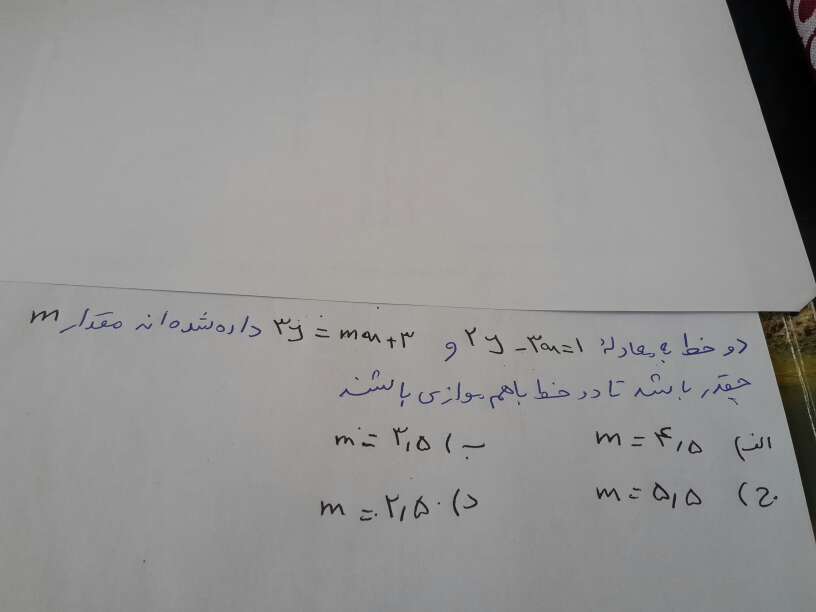 دو خط به معادلهٔ ۲y - ۳x = ۱ و ۳y = mx + ۳ داده شده اند مقدار m
چقدر باشد تا دو خط باهم موازی باشند
الف) m = ۴,۵ ب) m = ۳,۵
ج) m = ۵,۵ د) m = ۲,۵